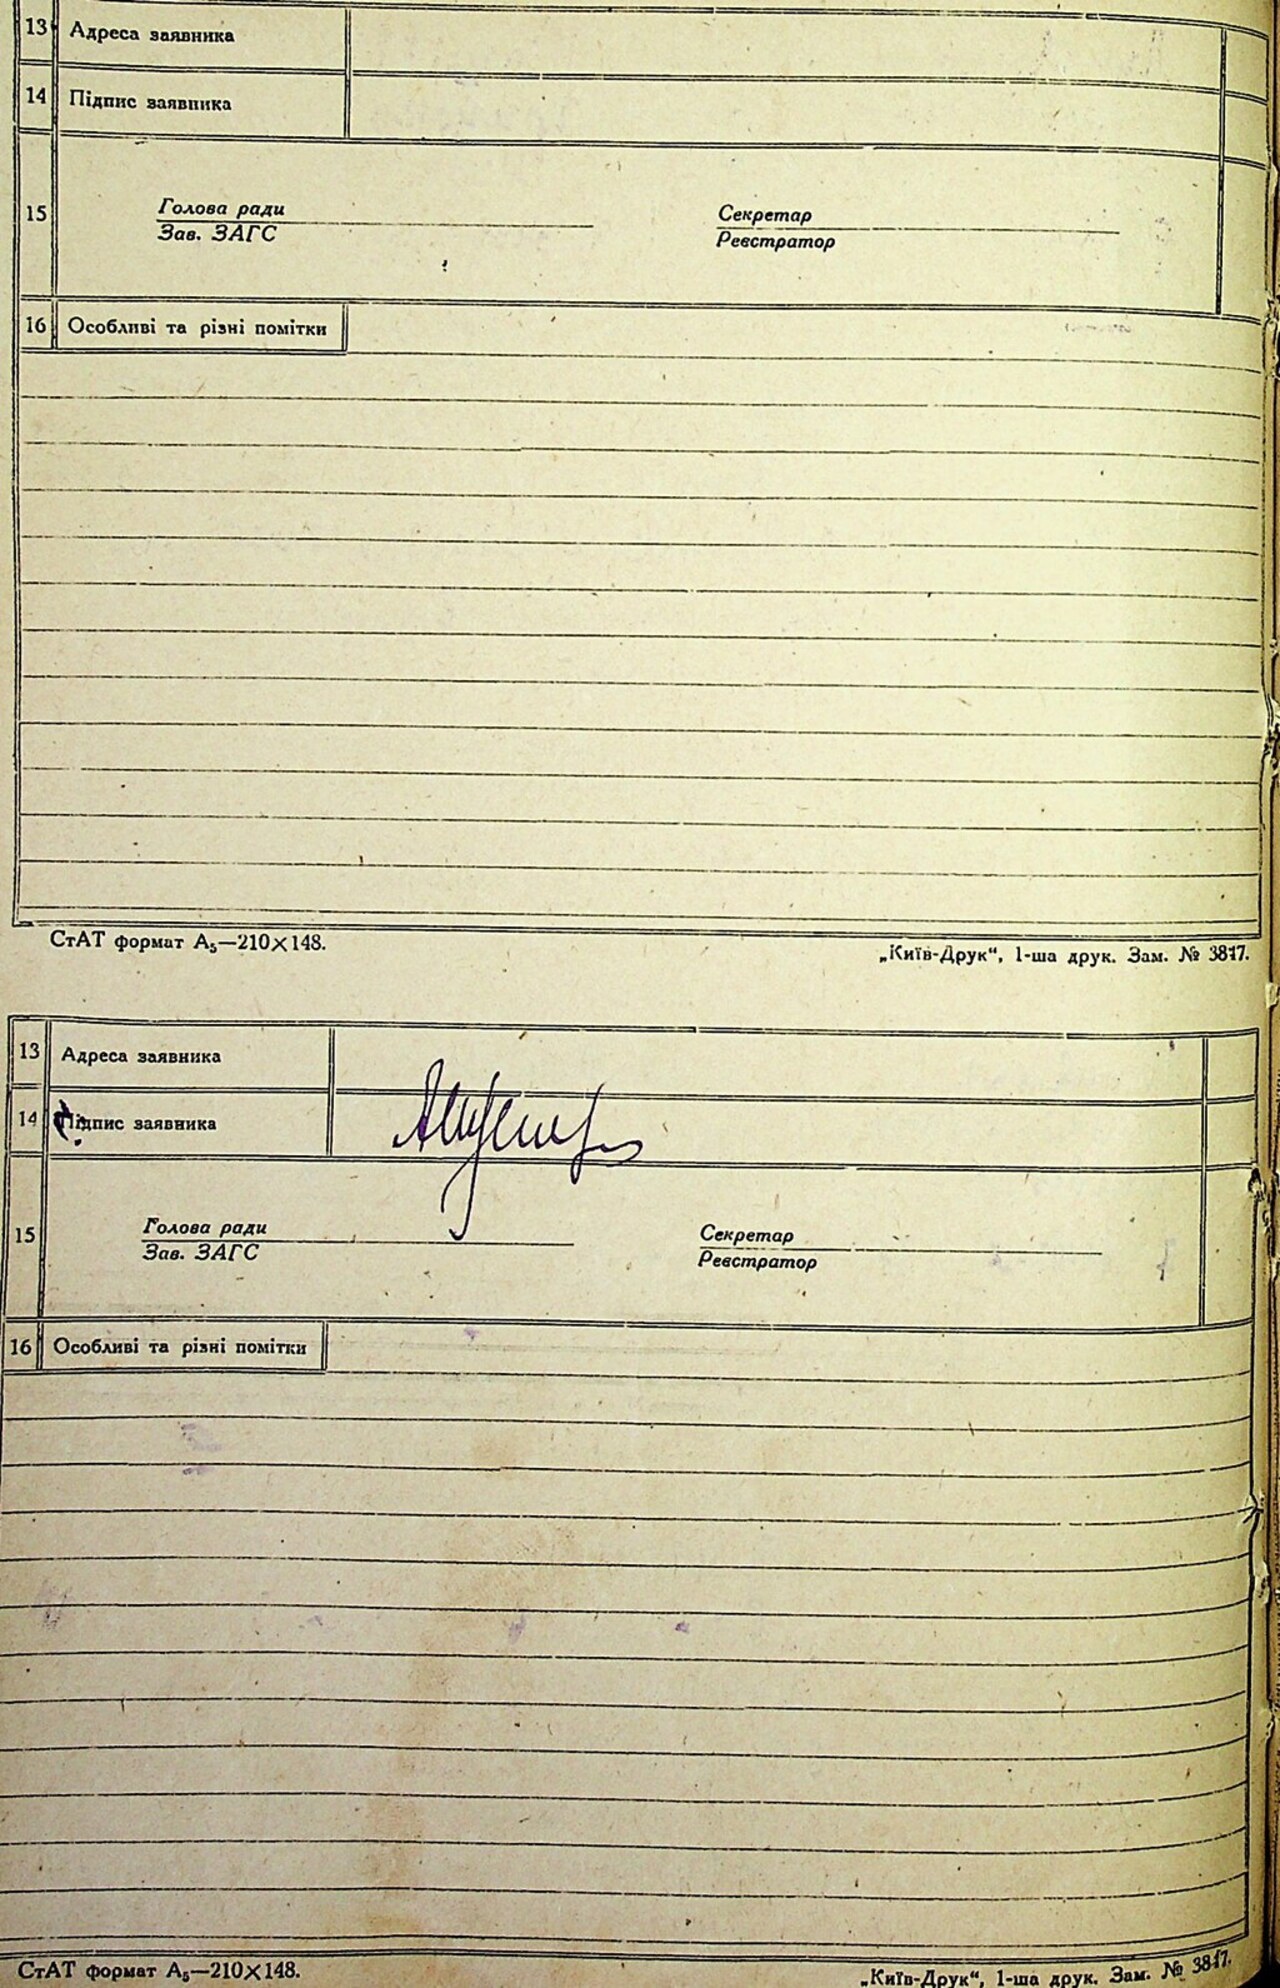 13 Адреса заявника
14 Підпис заявника
15 Голова ради Секретар
Зав. ЗАГС Реєстратор
16 Особливі та різні помітки
СтАТ формат А₅—210×148. „Київ-Друк“, 1-ша друк. Зам. № 3817.
13 Адреса заявника
14 Підпис заявника
15 Голова ради Секретар
Зав. ЗАГС Реєстратор
16 Особливі та різні помітки
СтАТ формат А₅—210×148. „Київ-Друк“, 1-ша друк. Зам. № 3817.